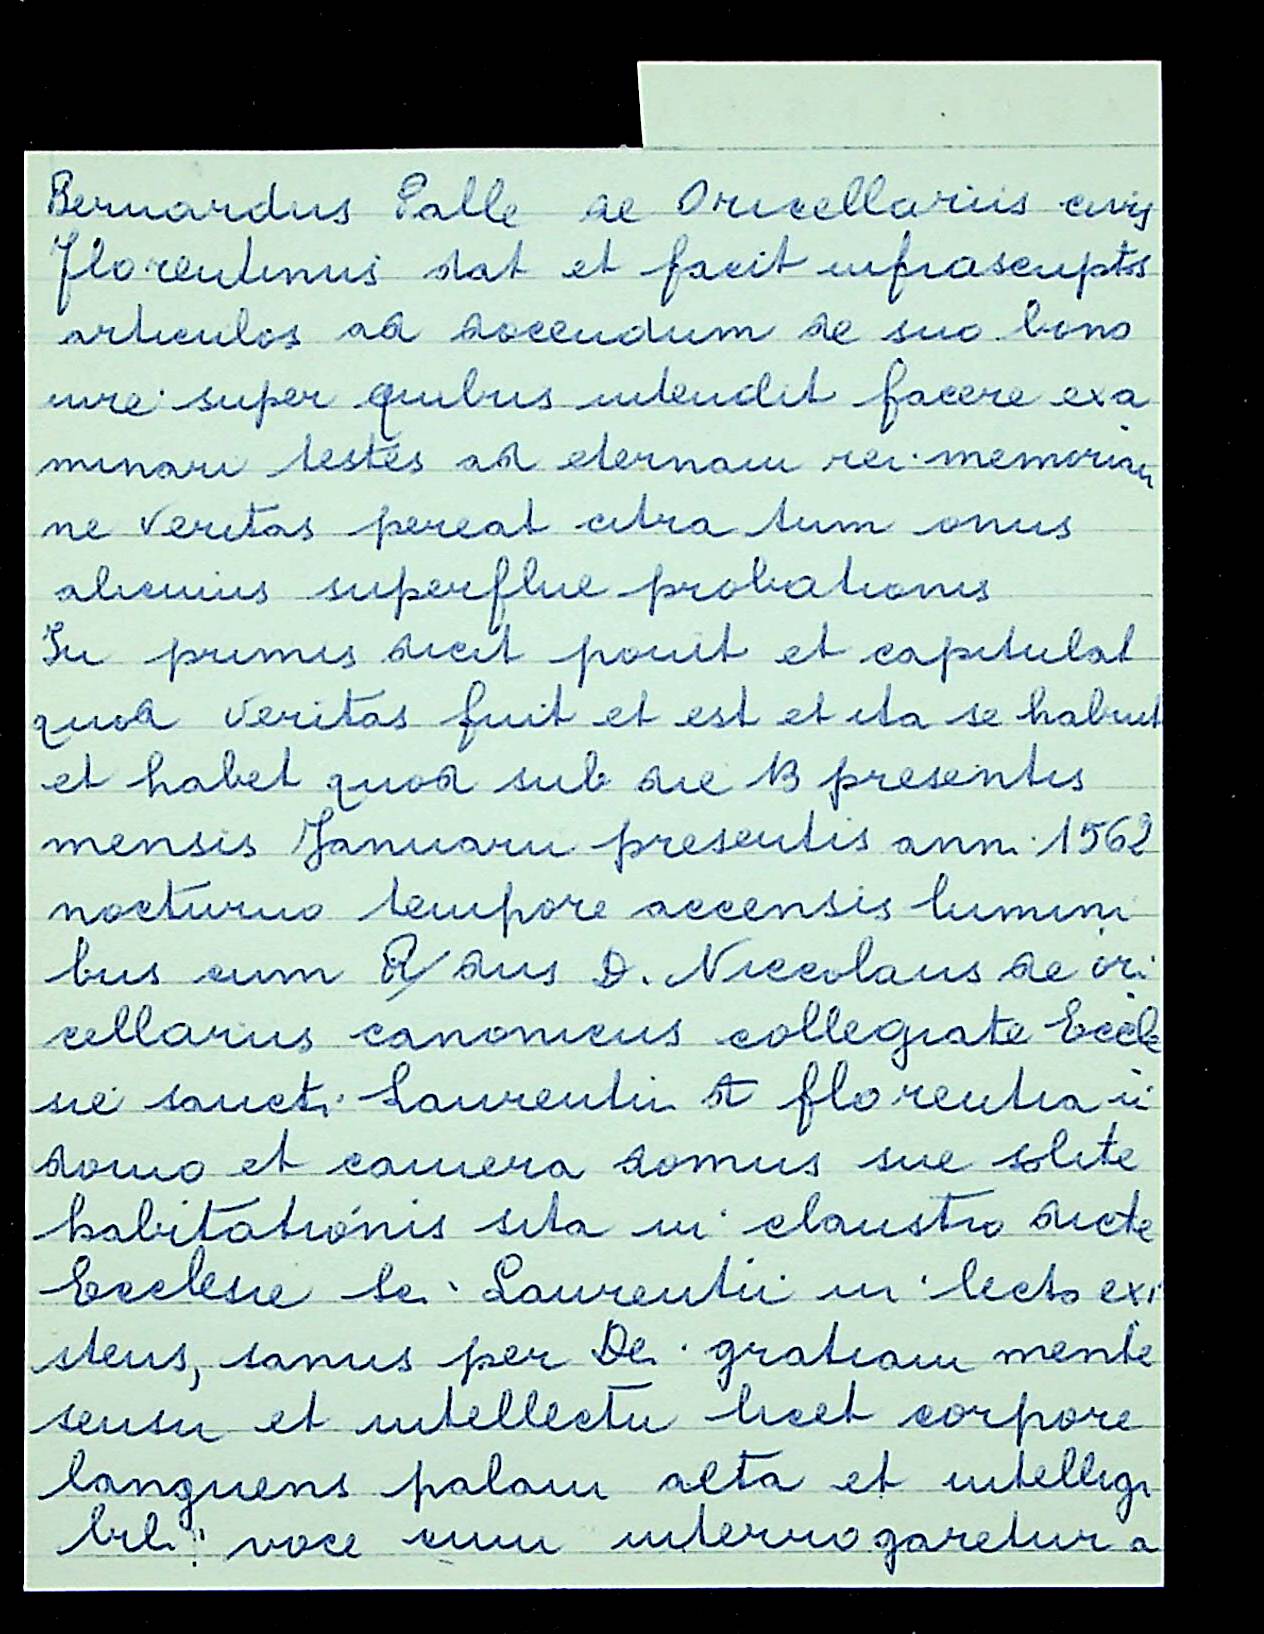 Bernardus Palle de Oricellariis civis
Florentinus dat et facit infrascriptos
articulos ad docendum de suo bono
iure super quibus intendit facere exa
minari testes ad eternam rei memoriam
ne veritas pereat citra tum onus
alicuius superflue probationis
In primis dicit ponit et capitulat
quod veritas fuit et est et ita se habuit
et habet quod sub die 13 presentis
mensis Januarii presentis anni 1562
nocturno tempore accensis lumini
bus cum R/dus D. Niccolaus de ori
cellariis canonicus collegiate Eccle
sie sancti Laurentii de florentia in
domo et camera domus sue solite
habitationis sita in claustro dicte
Ecclesie Sci Laurentii in lecto exi
stens, sanus per Dei gratiam mente
sensu et intellectu licet corpore
languens palam alta et intelligi
bili voce cum interrogaretur a